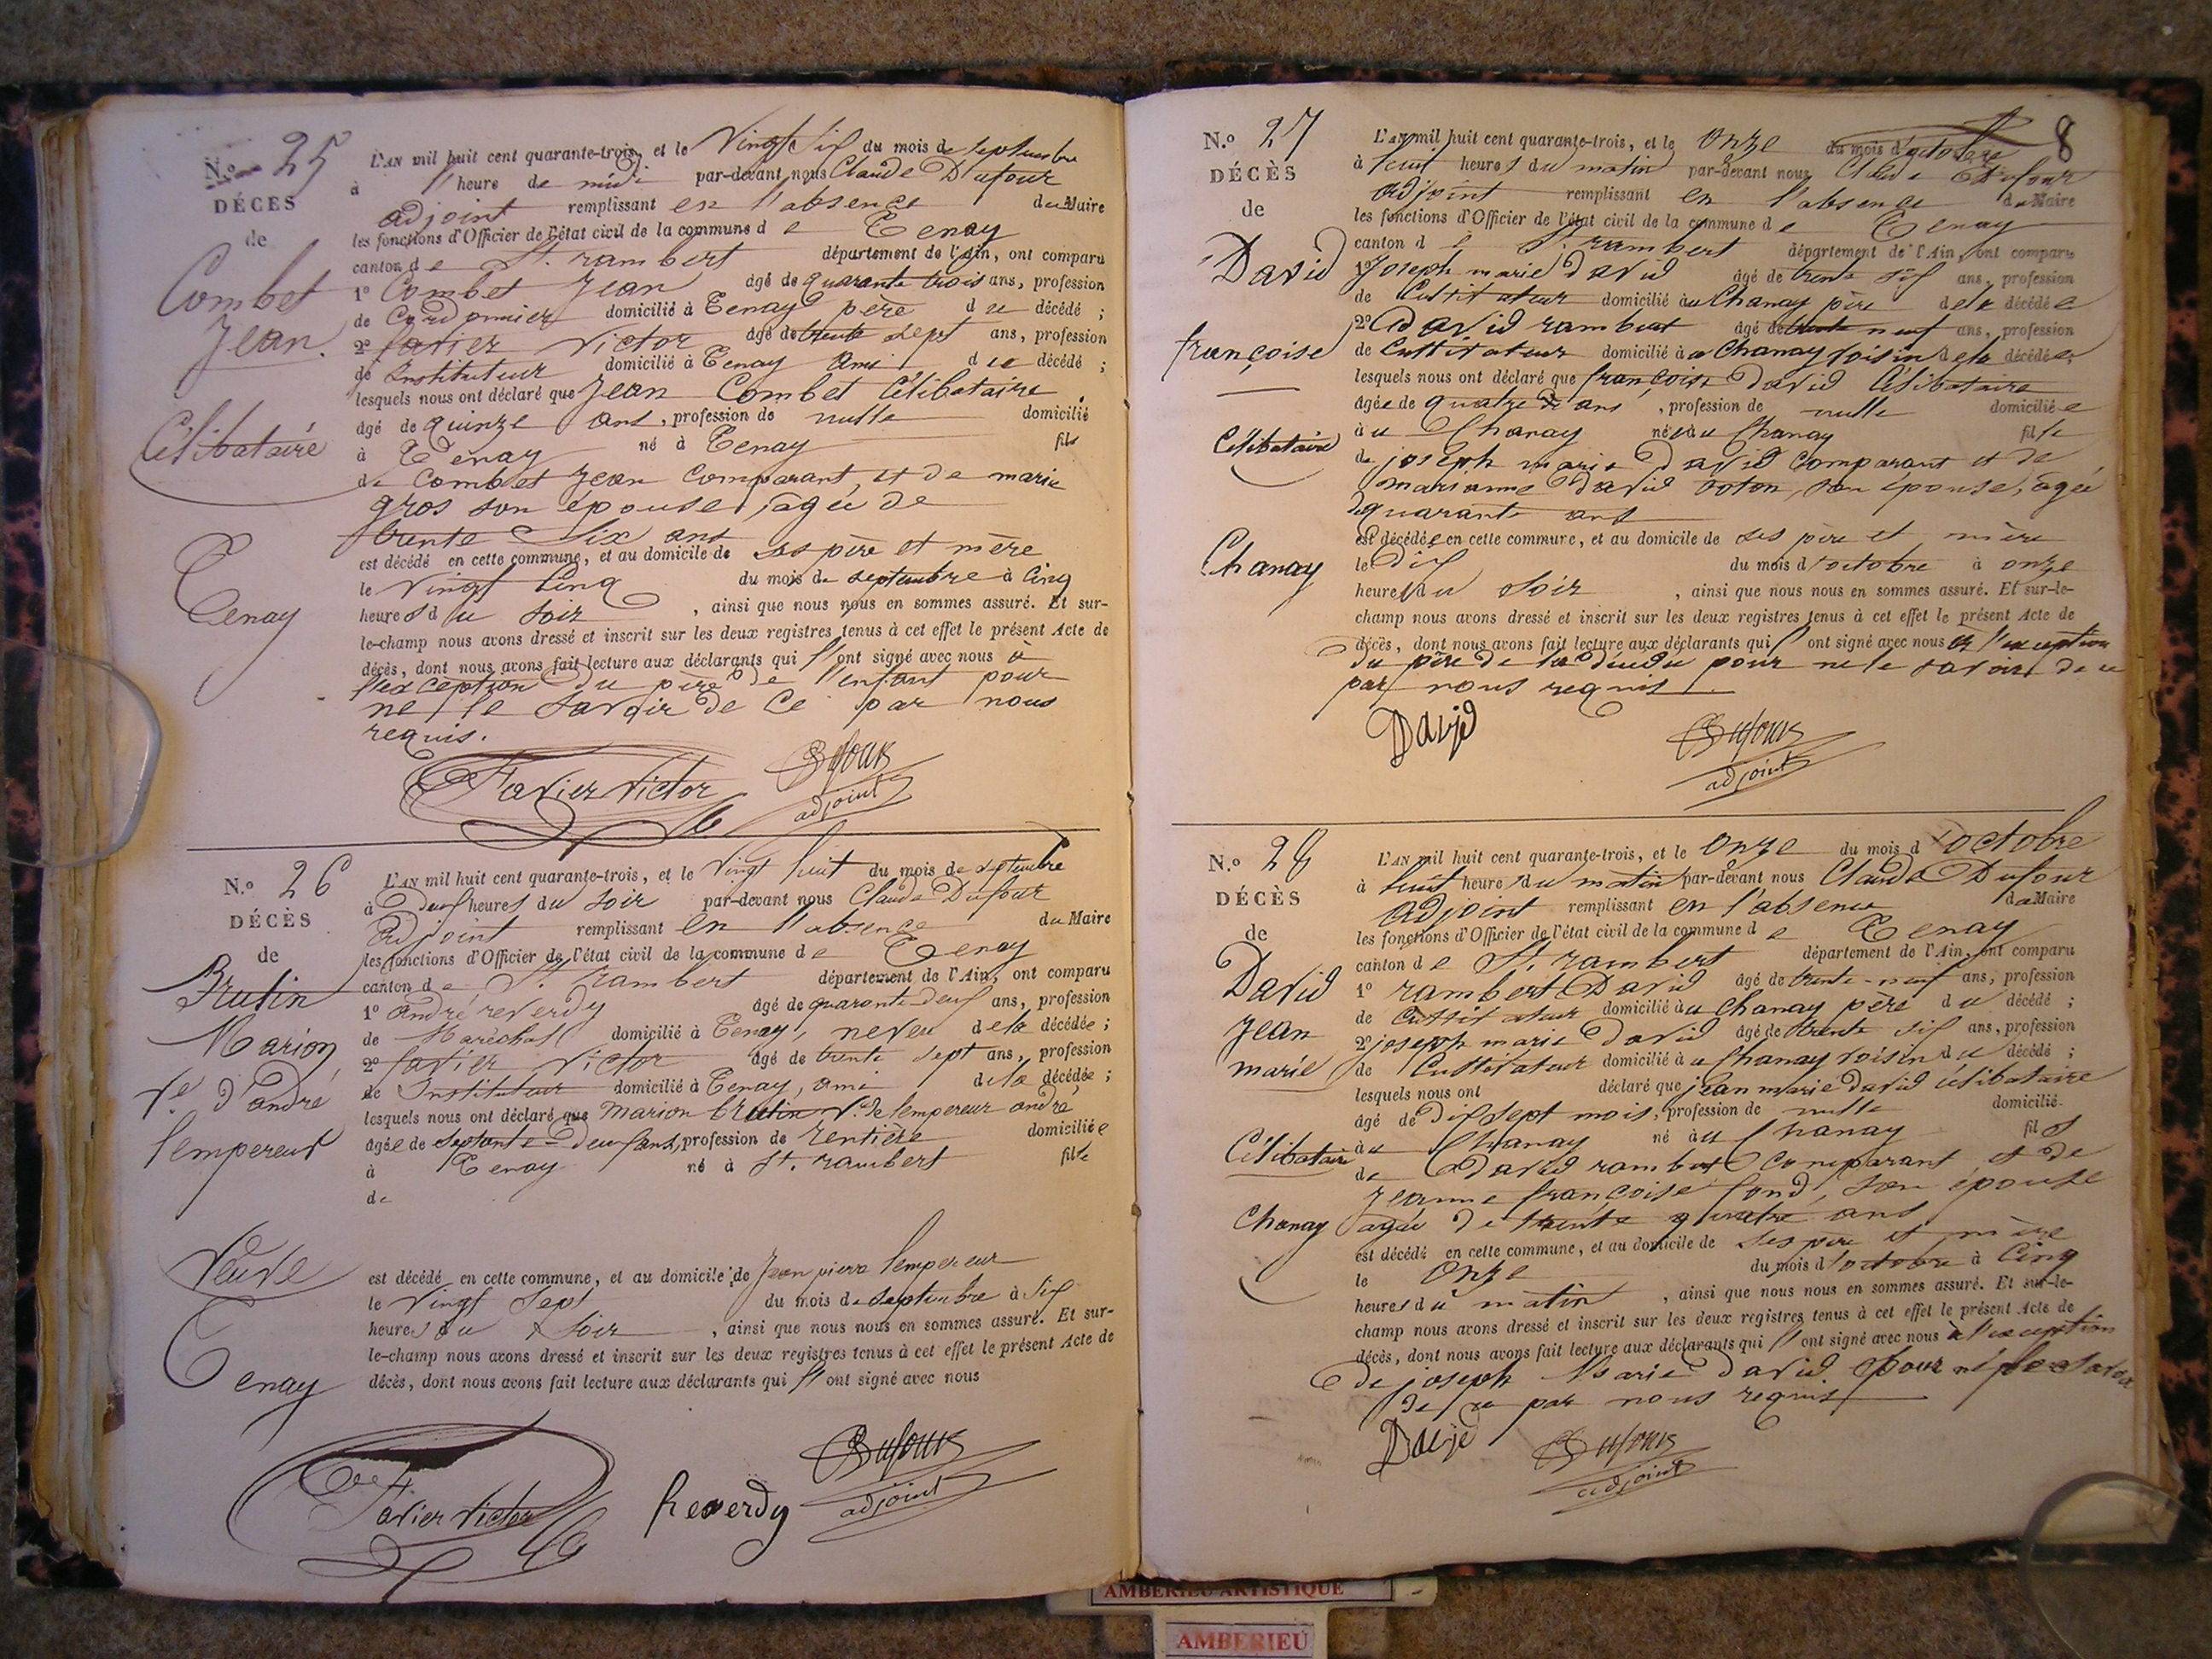 N.o 25
DÉCES
de
Combet
Jean.
Célibataire
Tenay
L'AN mil huit cent quarante-trois, et le Vingt Six du mois de septembre
à 1 heure de midi par-devant nous Claude Dufour
adjoint remplissant en l'absence du Maire
les fonctions d'Officier de l'état civil de la commune de Tenay
canton de St. rambert département de l'Ain, ont comparu
1o Combet Jean âgé de quarante trois ans, profession
de Cordonnier domicilié à Tenay père du décédé ;
2o favier Victor âgé de trente sept ans, profession
de Instituteur domicilié à Tenay ami du décédé ;
lesquels nous ont déclaré que Jean Combet Célibataire
âgé de quinze ans, profession de nulle domicilié
à Tenay né à Tenay fils
de Combet Jean Comparant, et de marie
gros son épouse, agée de
trente Six ans
est décédé en cette commune, et au domicile de ses père et mère
le Vingt Cinq du mois de septembre à Cinq
heures du soir, ainsi que nous nous en sommes assuré. Et sur-
le-champ nous avons dressé et inscrit sur les deux registres tenus à cet effet le présent Acte de
décès, dont nous avons fait lecture aux déclarants qui l'ont signé avec nous à
l'exception du père de l'enfant pour
ne le savoir de Ce par nous
requis.
Favier Victor Dufour
adjoint
N.o 26
DÉCÈS
de
Brutin
Marion
Ve d'andré
lempereur
Veuve
Tenay
L'AN mil huit cent quarante-trois, et le Vingt huit du mois de septembre
à deux heures du soir par-devant nous Claude Dufour
adjoint remplissant en l'absence du Maire
les fonctions d'Officier de l'état civil de la commune de Tenay
canton de St. rambert département de l'Ain, ont comparu
1o andré reverdy âgé de quarante deux ans, profession
de Maréchal domicilié à Tenay, neveu de la décédée ;
2o favier Victor âgé de trente sept ans, profession
de Instituteur domicilié à Tenay, ami de la décédée ;
lesquels nous ont déclaré que marion brutin Ve de lempereur andré
âgée de septante-deux ans, profession de rentière domiciliée
à Tenay né à St. rambert fille
de
est décédé en cette commune, et au domicile de Jean pierre lempereur
le Vingt Sept du mois de septembre à Six
heures du soir, ainsi que nous nous en sommes assuré. Et sur-
le-champ nous avons dressé et inscrit sur les deux registres tenus à cet effet le présent Acte de
décès, dont nous avons fait lecture aux déclarants qui l'ont signé avec nous
Favier Victor Reverdy Dufour
adjoint
8
N.o 27
DÉCÈS
de
David
françoise
Célibataire
Chanay
L'AN mil huit cent quarante-trois, et le onze du mois d'octobre
à huit heures du matin par-devant nous Claude Dufour
adjoint remplissant en l'absence du Maire
les fonctions d'Officier de l'état civil de la commune de Tenay
canton de St. rambert département de l'Ain, ont comparu
1o Joseph marie david âgé de trente six ans, profession
de Cultivateur domicilié au Chanay père de la décédée
2o david rambert âgé de trente neuf ans, profession
de Cultivateur domicilié au Chanay voisin de la décédée;
lesquels nous ont déclaré que françoise david Célibataire
âgée de quatre ans, profession de nulle domiciliée
au Chanay née au Chanay fille
de joseph marie david Comparant et de
marianne david, son épouse, agée
de quarante ans
est décédée en cette commune, et au domicile de ses père et mère
le Dix du mois d'octobre à onze
heures du Soir, ainsi que nous nous en sommes assuré. Et sur-le-
champ nous avons dressé et inscrit sur les deux registres tenus à cet effet le présent Acte de
décès, dont nous avons fait lecture aux déclarants qui l'ont signé avec nous à l'exception
du père de la pour ne le savoir de ce
par nous requis.
David Dufour
adjoint
N.o 28
DÉCÈS
de
David
Jean
marie
Célibataire
Chanay
L'AN mil huit cent quarante-trois, et le onze du mois d'octobre
à huit heures du matin par-devant nous Claude Dufour
adjoint remplissant en l'absence du Maire
les fonctions d'Officier de l'état civil de la commune de Tenay
canton de St. rambert département de l'Ain, ont comparu
1o rambert David âgé de trente-neuf ans, profession
de Cultivateur domicilié au Chanay père du décédé ;
2o joseph marie david âgé de trente six ans, profession
de Cultivateur domicilié au Chanay voisin du décédé ;
lesquels nous ont déclaré que jean marie david célibataire
âgé de dix sept mois, profession de nulle domicilié
au Chanay né au Chanay fils
de David rambert Comparant et de
Jeanne françoise fond, son épouse
agée de trente quatre ans
est décédé en cette commune, et au domicile de ses père et mère
le onze du mois d'octobre à Cinq
heures du matin, ainsi que nous nous en sommes assuré. Et sur-le-
champ nous avons dressé et inscrit sur les deux registres tenus à cet effet le présent Acte de
décès, dont nous avons fait lecture aux déclarants qui l'ont signé avec nous à l'exception
de joseph Marie david pour ne le savoir
de ce par nous requis
David Dufour
adjoint
AMBERIEU ARTISTIQUE
AMBERIEU